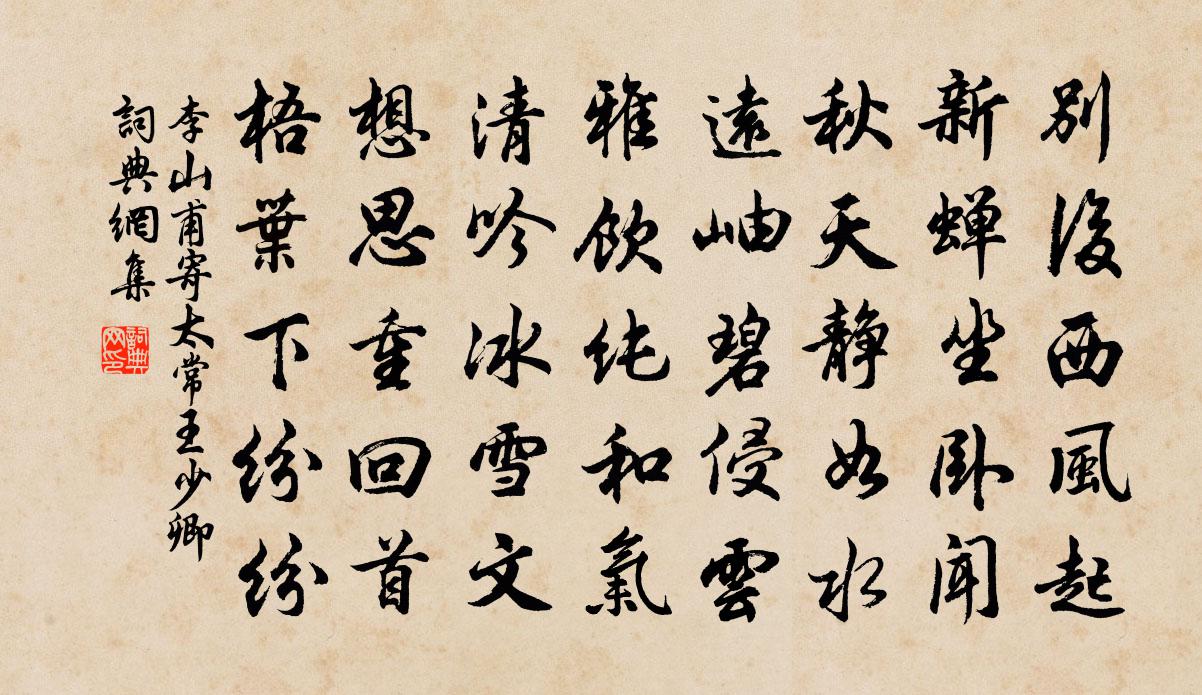 別後西風起
新蟬坐卧聞
秋天靜如水
遠岫碧侵雲
雅飲純和氣
清吟冰雪文
想思重回首
梧葉下紛紛
李山甫寄太常王少卿
詞典網集
詞典網印